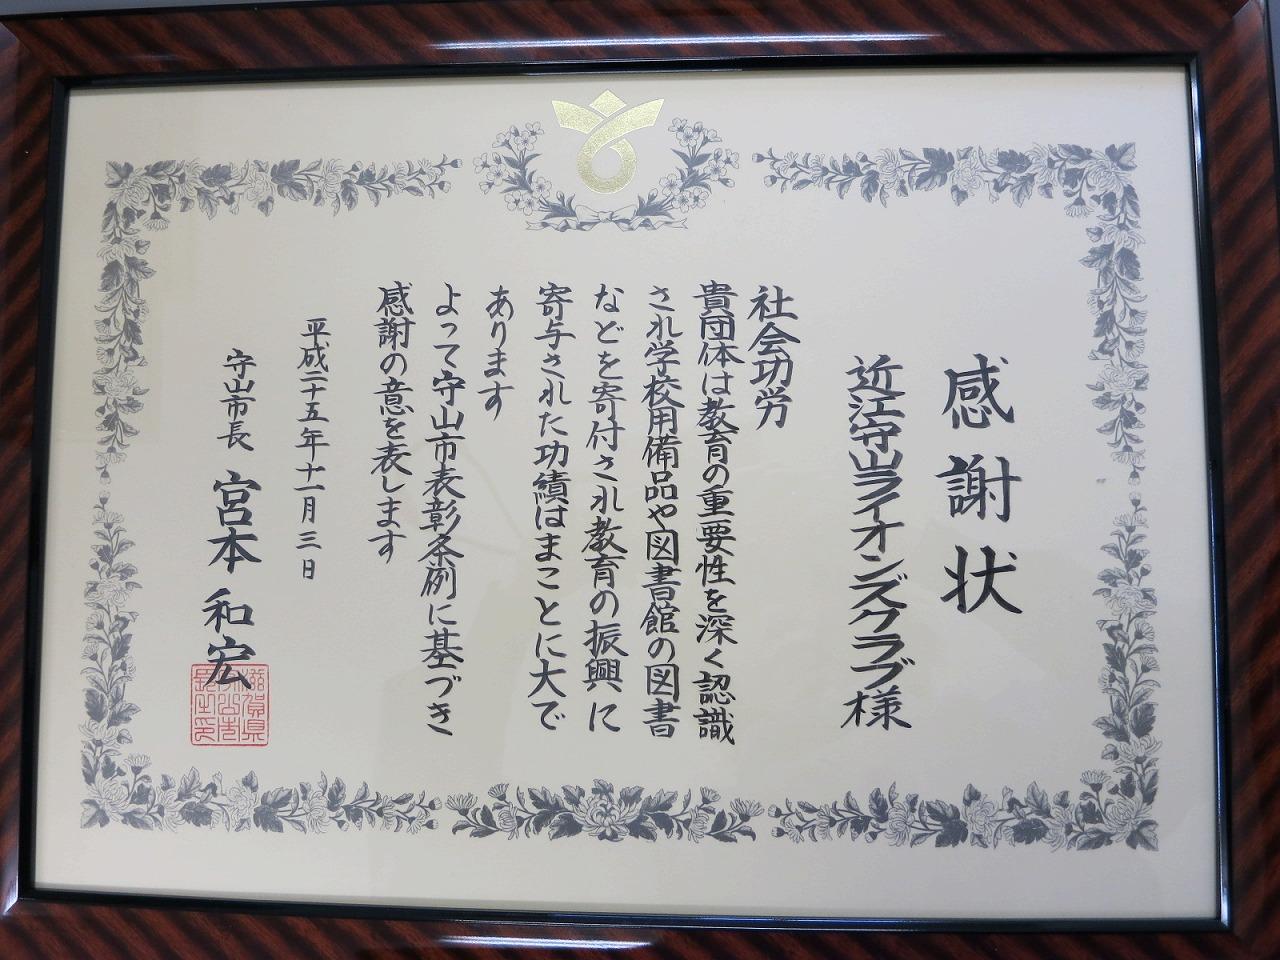 感謝状
近江守山ライオンズクラブ様
社会功労
貴団体は教育の重要性を深く認識
され学校用備品や図書館の図書
などを寄付され教育の振興に
寄与された功績はまことに大で
あります
よって守山市表彰条例に基づき
感謝の意を表します
平成二十五年十一月三日
守山市長 宮本和宏